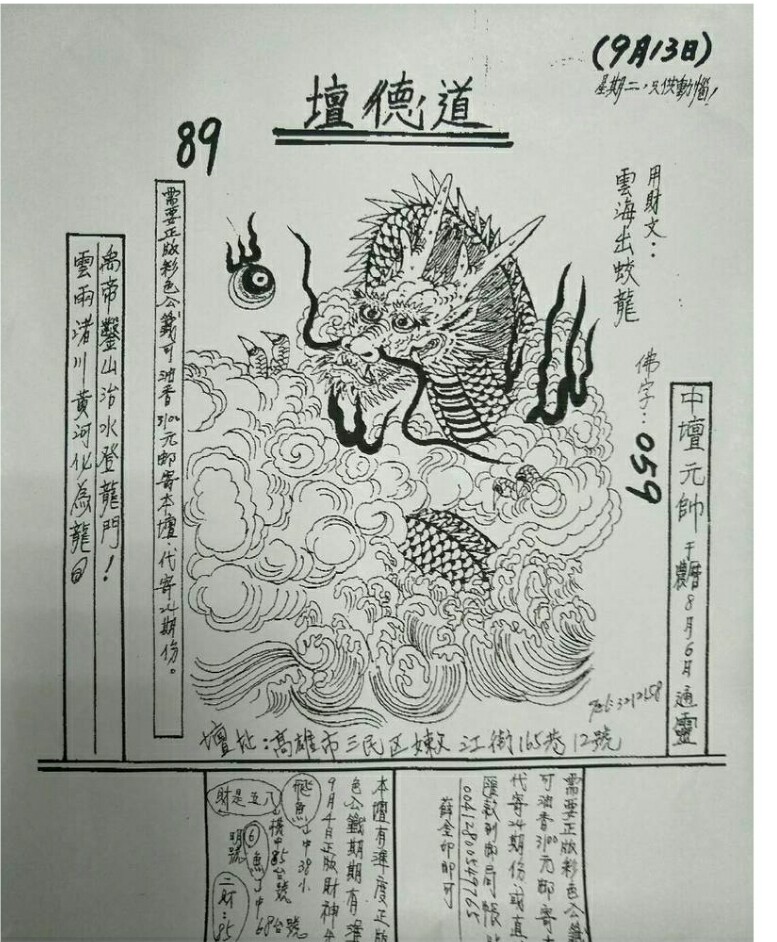 (9月13日)
星期二，只供動惱！
道德壇
89
用財文：
雲海出蛟龍
佛字：059
中壇元帥 于農曆8月6日通靈
需要正版彩色公籤可油香3100元邮寄本壇．代寄24期份。
禹帝鑿山治水登龍門！
雲雨渚川黃河化為龍
Tel:3212158
壇址：高雄市三民区嫩江街165巷12號
需要正版彩色公
可油香3100元邮寄本
代寄24期份．或直
匯款到邮局帳
00412800549765
薛金印即可
本壇有準度正版
色公籤期期有準
9月4日正版財神
飛魚丁中38小
中85台號
⑥魚丁中68台號
財是五八
明號
二財：85